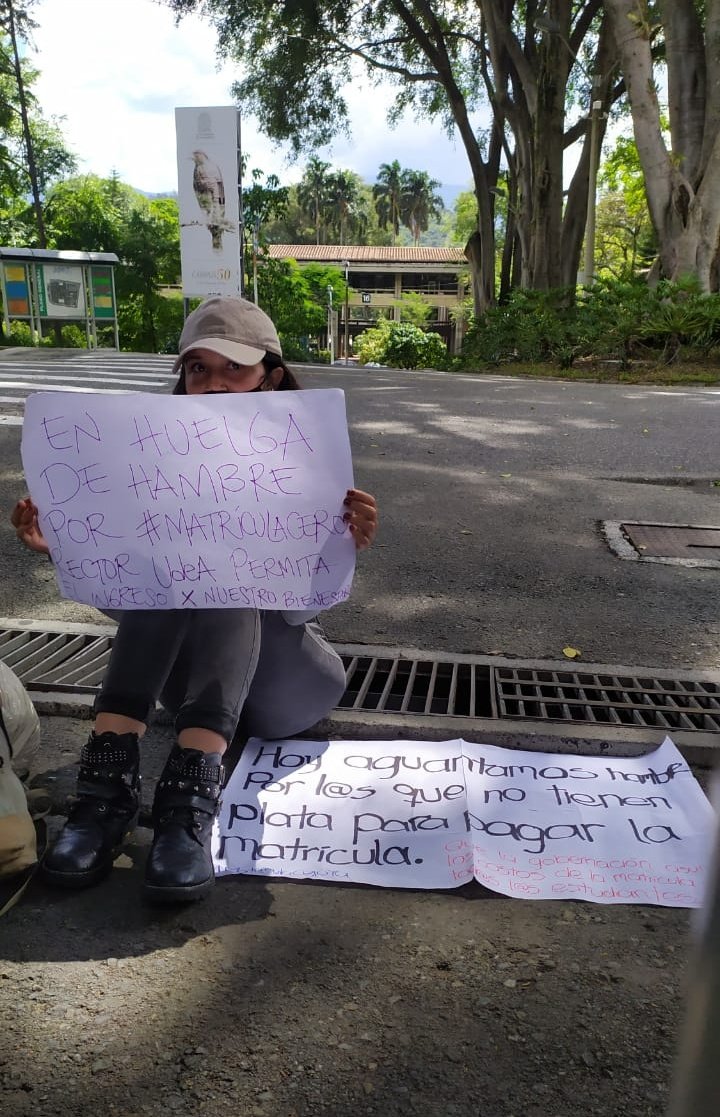 CAMPUS 50
16
EN HUELGA
DE HAMBRE
POR #MATRÍCULACERO
RECTOR UdeA PERMITA
EL INGRESO X NUESTRO BIENESTAR
Hoy aguantamos hambre
Por l@s que no tienen
plata para pagar la
matrícula.
Que la gobernación asuma
los costos de la matrícula
todos l@s estudiantes